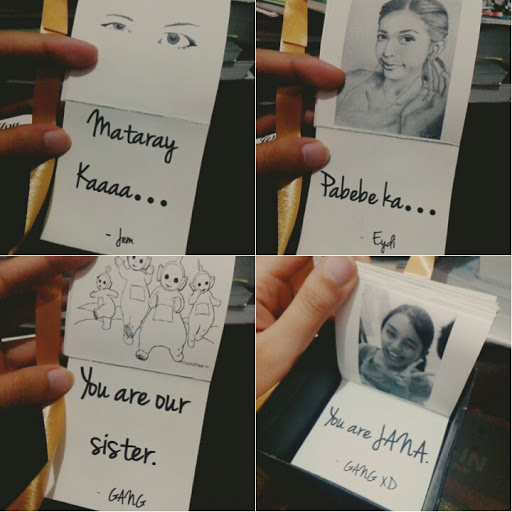 Mataray
Kaaaa...
- Jem
Pabebe ka...
- Eydi
You are our
sister.
- GANG
You are JANA.
- GANG XD